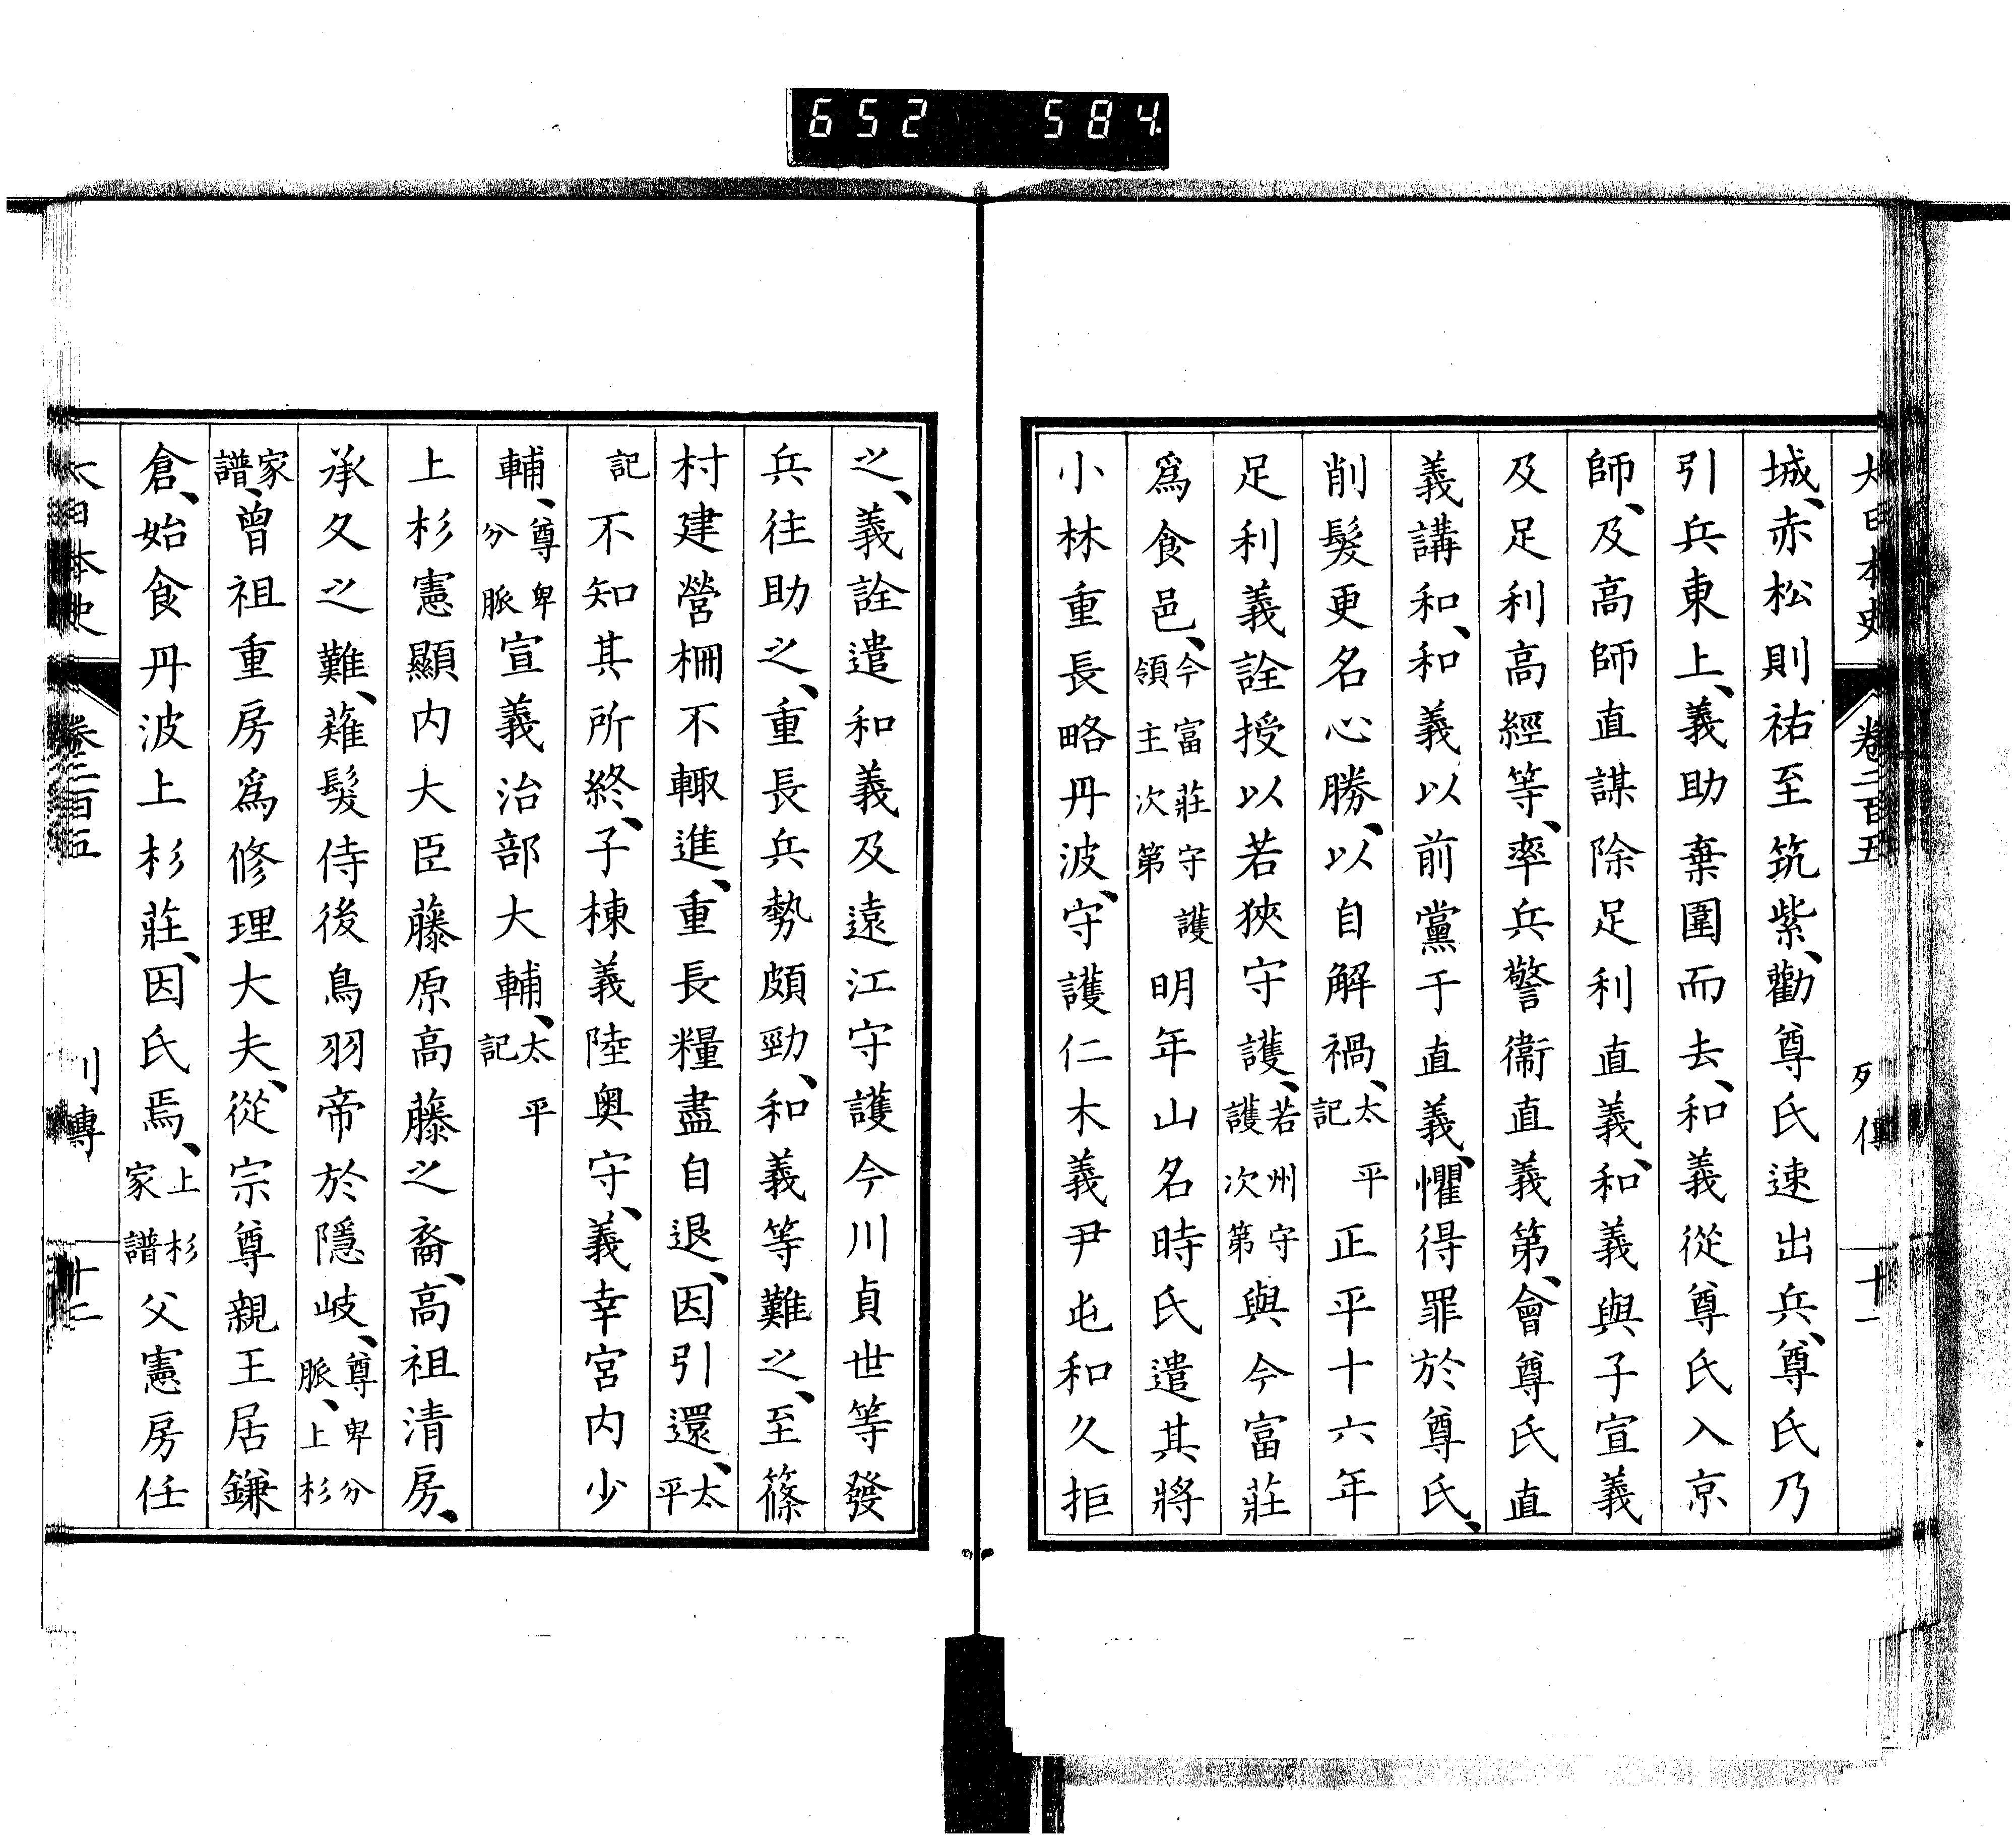 652 584
大日本史 卷二百五 列傳 十一
城、赤松則祐至筑紫、勸尊氏速出兵、尊氏乃
引兵東上、義助棄圍而去、和義從尊氏入京
師、及高師直謀除足利直義、和義與子宣義
及足利高經等、率兵警衞直義第、會尊氏直
義講和、和義以前黨于直義、懼得罪於尊氏、
削髮更名心勝、以自解禍、太平記正平十六年
足利義詮授以若狹守護、若州守護次第與今富莊
爲食邑、今富莊守護領主次第明年山名時氏遣其將
小林重長略丹波、守護仁木義尹屯和久拒
之、義詮遣和義及遠江守護今川貞世等發
兵往助之、重長兵勢頗勁、和義等難之、至篠
村建營柵不輙進、重長糧盡自退、因引還、太平
記不知其所終、子棟義陸奧守、義幸宮内少
輔、尊卑分脈宣義治部大輔、太平記
上杉憲顯内大臣藤原高藤之裔、高祖清房、
承久之難、薙髮侍後鳥羽帝於隱岐、尊卑分脈、上杉
家譜、曾祖重房爲修理大夫、從宗尊親王居鎌
倉、始食丹波上杉莊、因氏焉、上杉家譜父憲房任
大日本史 卷二百五 列傳 十二